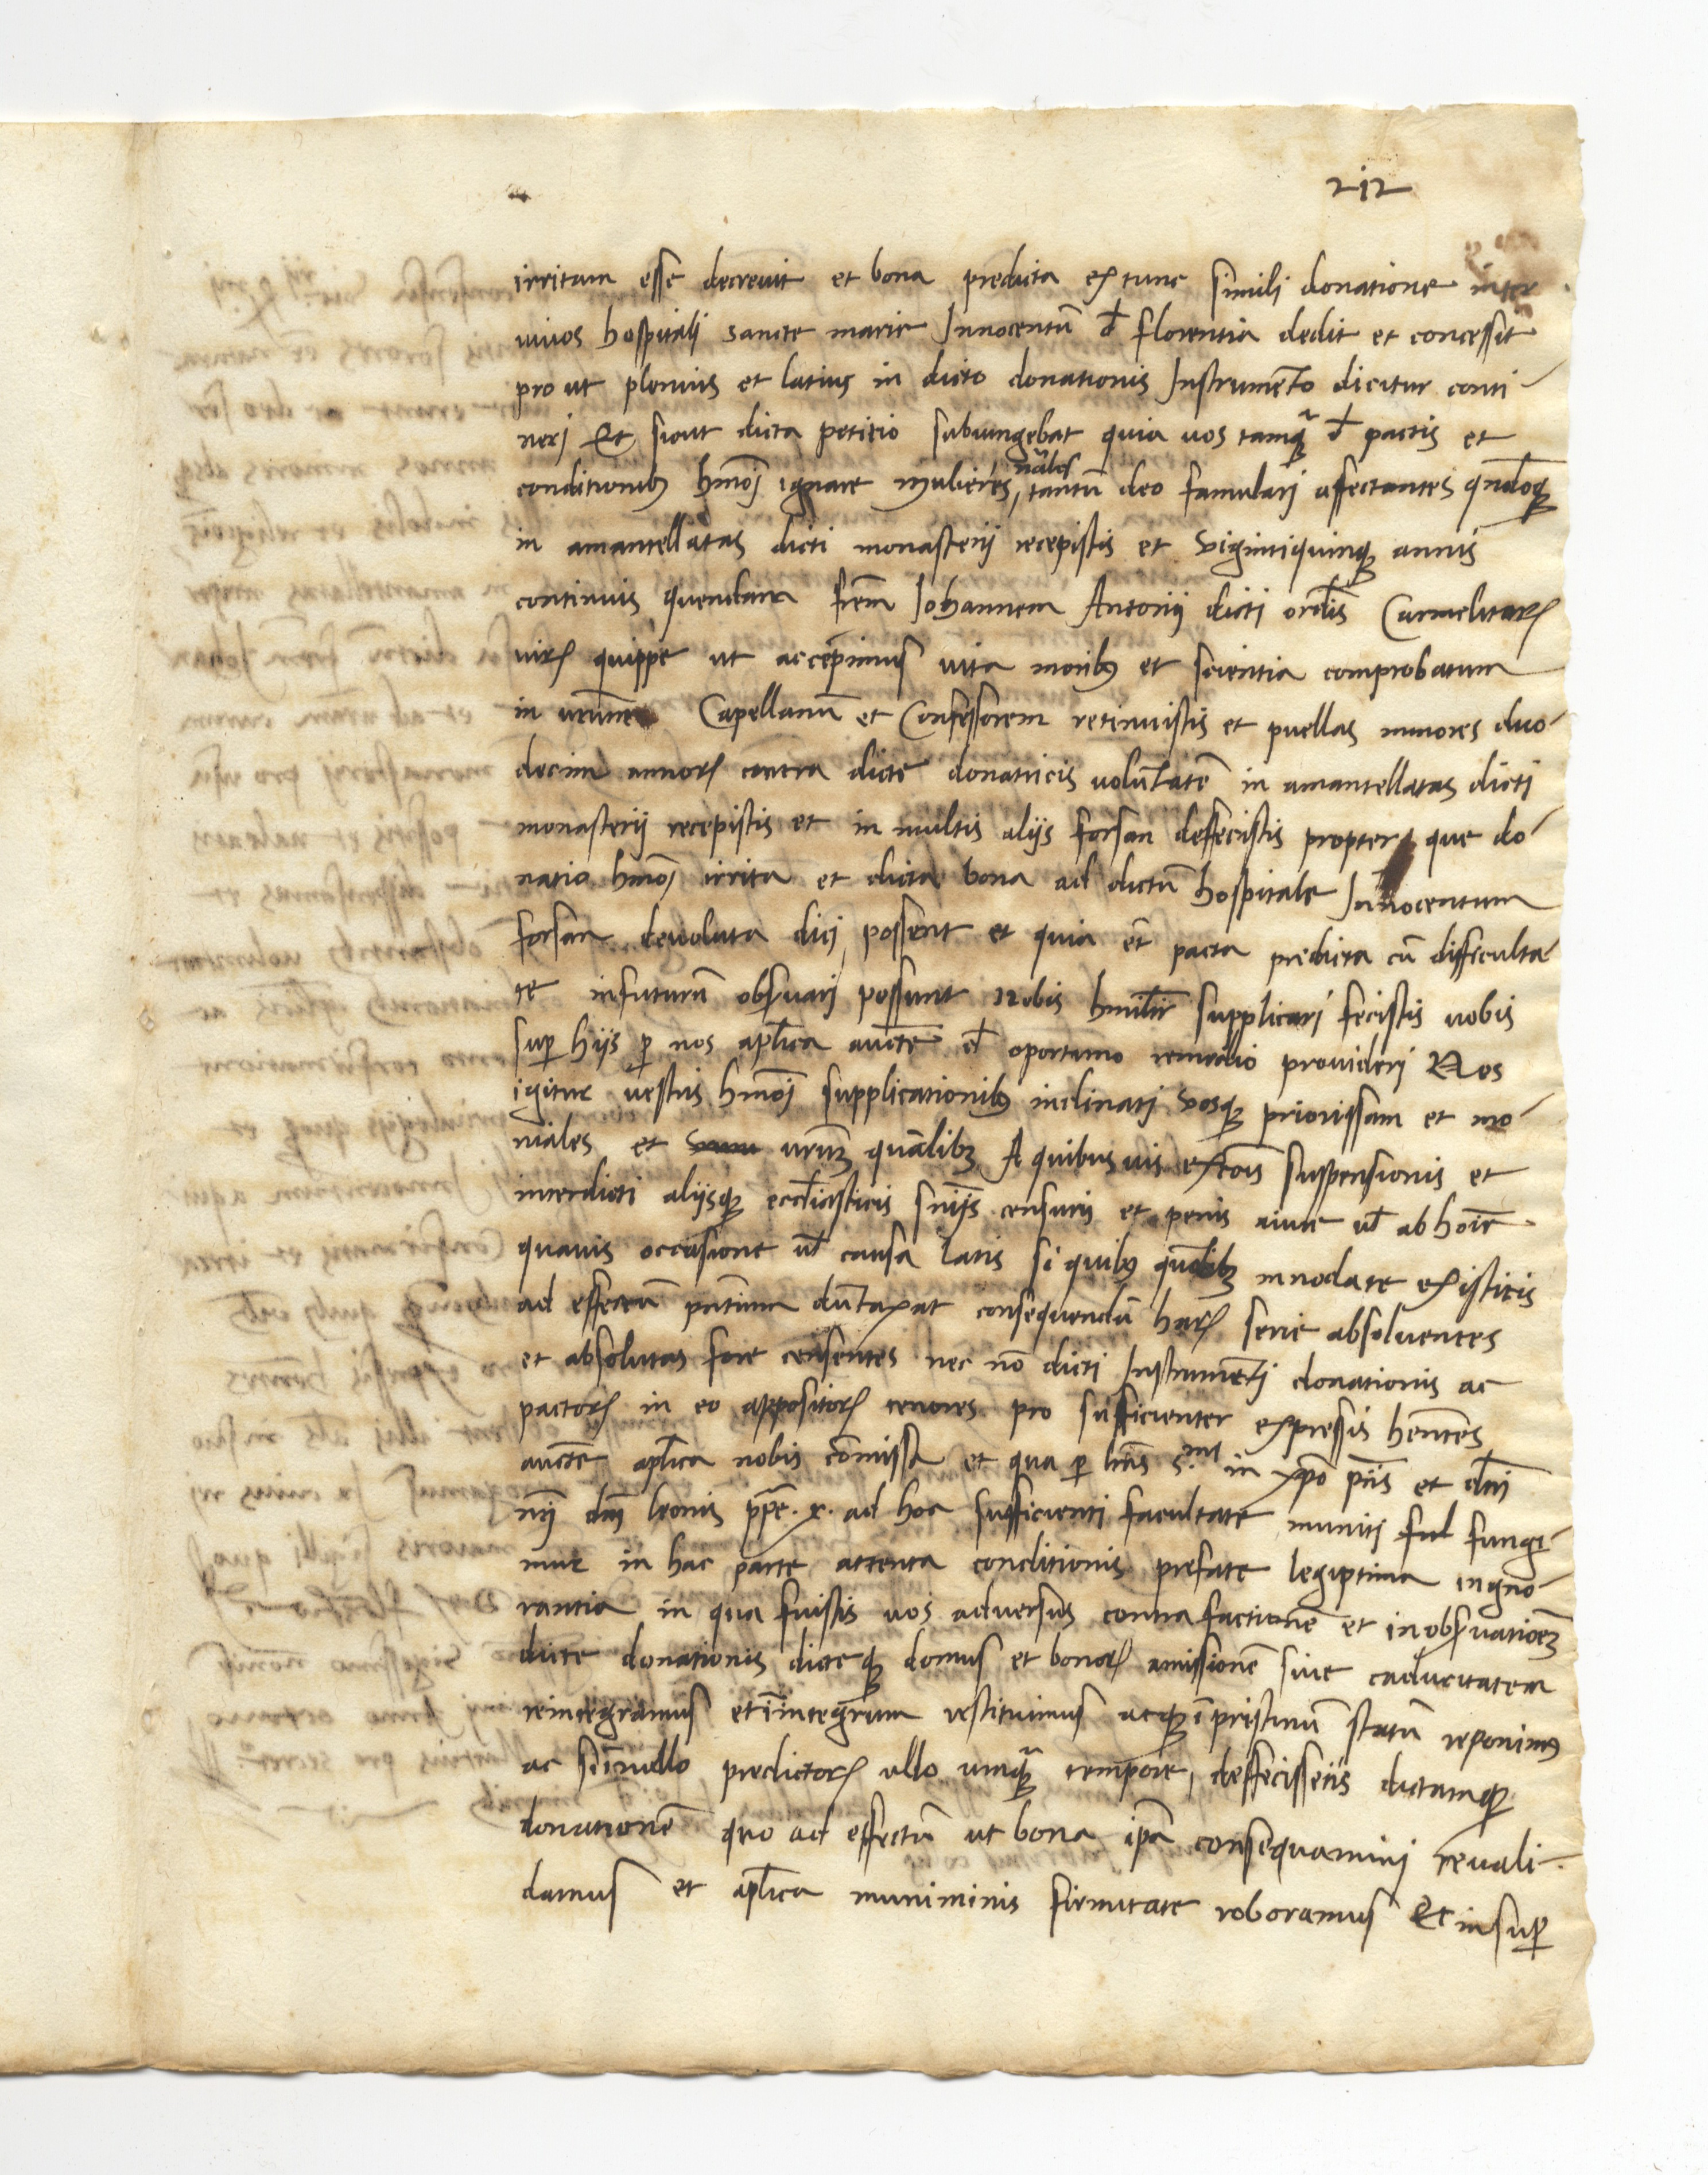 212
irritum esse decrevit et bona predicta ex tunc simili donatione inter
vivos hospitali sancte marie Innocentū đ florentia dedit et concessit
prout plenius et latius in dicto donationis Instrumēto dicitur conti-
neri Et sicut dicta petitio subiungebat quia vos tamq̄ đ pactis et
conditionib9 hmōi ignare mulieres, tantū deo famulari affectantes
in amantellatas dicti monasterij recepistis et vigintiquinq; annis
continuis quendam frēm Johannem Antonij dicti ordīs Carmelitarꝝ
virꝝ quippe ut accepimus vita morib9 et scientia comprobatum
in Capellanū et Confessorem retinuistis et puellas minores duo-
decim annorꝝ contra dicte donatricis volūtatē in amantellatas dicti
monasterij recepistis et in multis alijs forsan deffecistis propter que do-
natio hmōi irrita et dicta bona ad dictū hospitale Innocentum
forsan devoluta dici possent et quia ēt pacta predicta cū difficulta-
te infuturū obsꝑvari possunt Nobis humilīr supplicari fecistis vobis
suꝑ hijs ꝑ nos aplīca auctē đ oportuno remedio provideri Nos
igitur vestris hmōi supplicationib9 inclinati vosq; priorissam et mo-
niales et vrūm quālibꝫ A quibusvis excōis suspensionis et
interdicti alijsq; ecclīasticis snīis censuris et penis a iure vł ab hoīe
quavis occasione vł causa latis si quib9 quōlibꝫ innodate existitis
ad effectū pntīum dūtaxat consequendū harꝝ serie absolventes
et absolutas fore censentes nec nō dicti Instrumēti donationis ac
pactorꝝ in eo appositorꝝ tenores pro sufficienter expressis hēntes
auctē aplīca nobis cōmissa et qua ꝑ lrās s.mi in xp̄o p̄ris et dnī
nrī dnī leonis ppē .x. ad hoc sufficienti facultate muniti ful fungi-
mur in hac parte attenta conditionis prefate legiptima ingno-
rantia in qua fuistis vos adversus contrafactionē et inobsꝑvationeꝫ
dicte donationis dicteq; domus et bonorꝝ amissionē sive caducitatem
reintegramus et ī integrum restituimus atq; ī pristinū statū reponim9
ac si ī nullo predictorꝝ ullo umq̄ tempore, deffecissetis dictamq;
donationē quo ad effectū ut bona ipā consequamini revali-
damus et aplīca muniminis firmitate roboramus Et insuꝑ